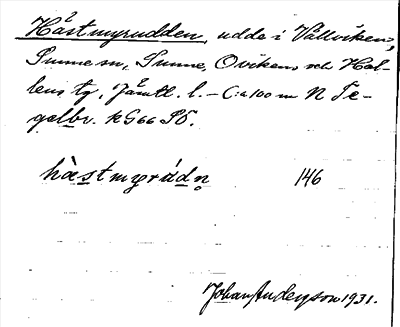 Hästmyrudden, udde i Vällviken,
Sunne sn, Sunne, Ovikens och Hal-
lens tg, Jämtl. l. – C:a 100 m N Te-
gelbr. k G 66 SÖ.
hàstmyrúdn̥ 146
Johan Anderson 1931.